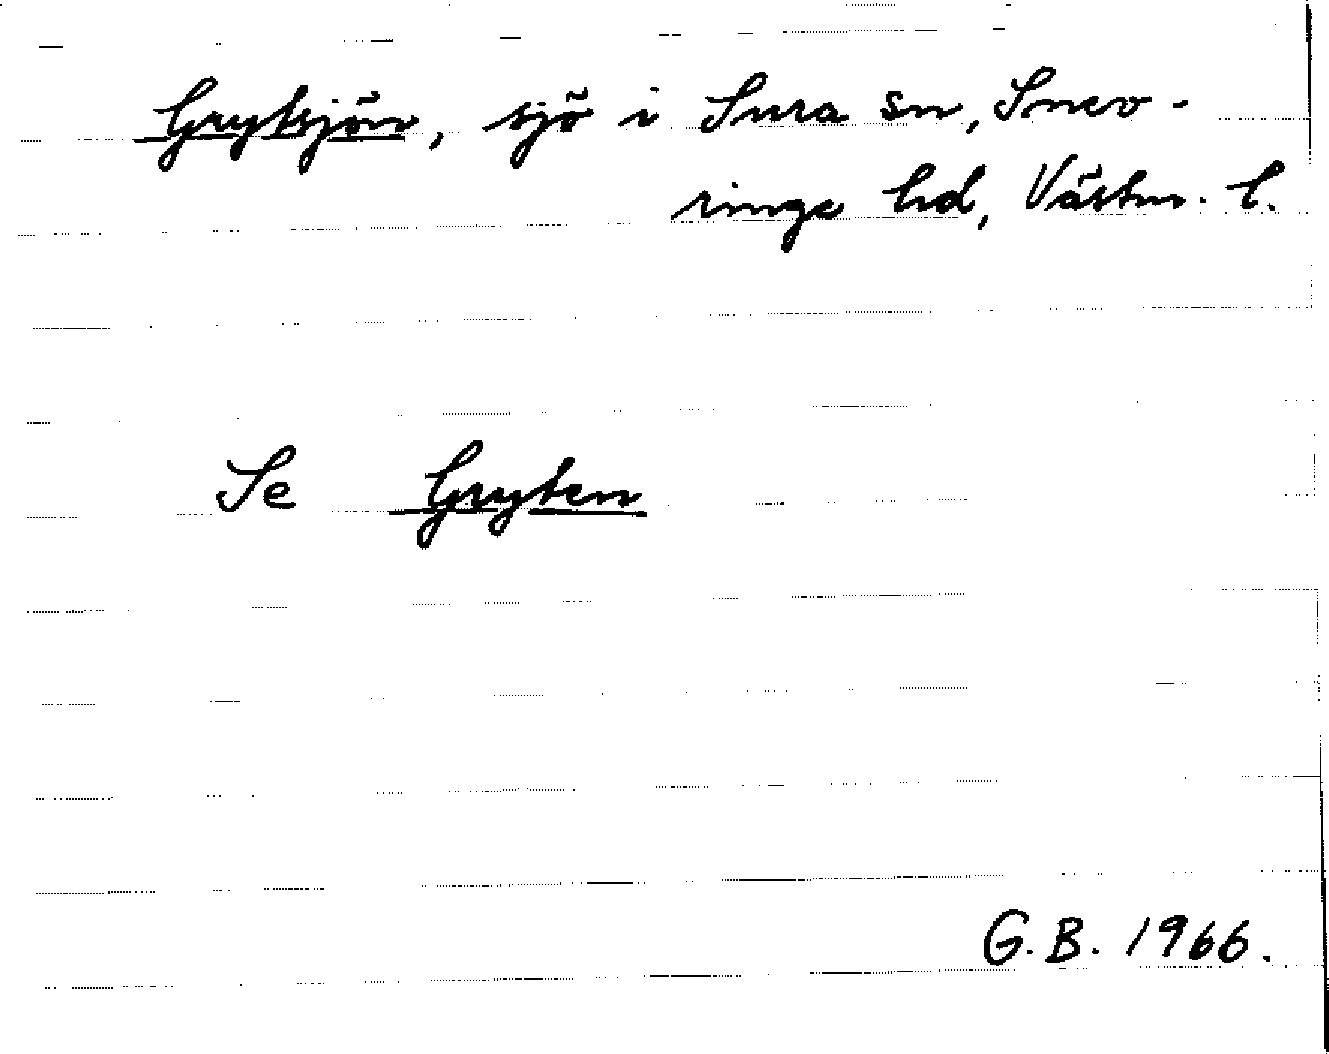 Grytsjön, sjö i Sura sn, Snev-
ringe hd, Västm. l.
Se Gryten
G.B. 1966.